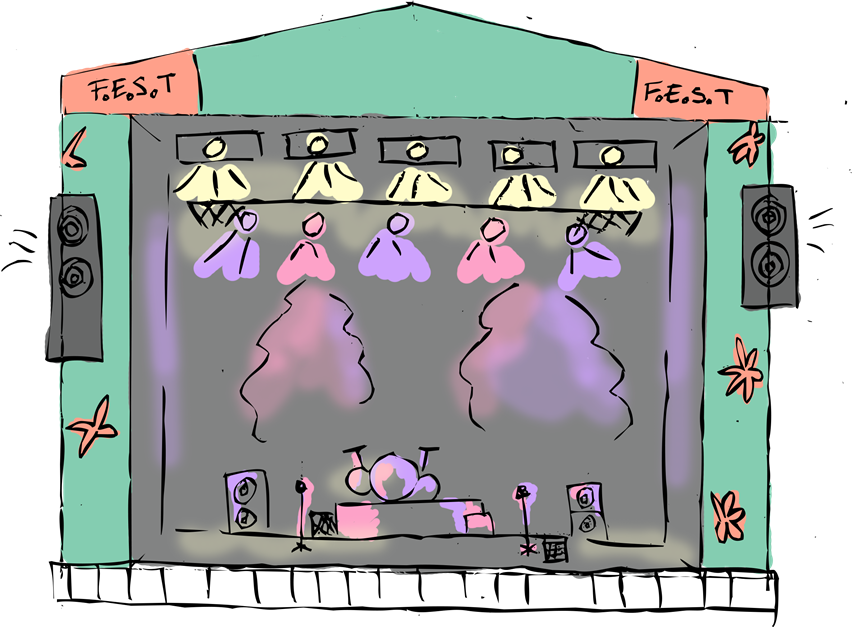 F.E.S.T
F.E.S.T